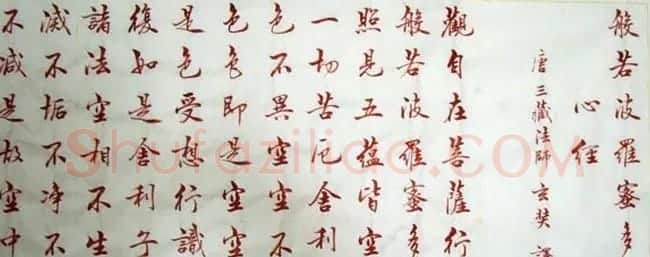 般若波羅蜜多
心經
唐三藏法師玄奘譯
觀自在菩薩行
般若波羅蜜多
照見五蘊皆空
一切苦厄舍利
色不異空空不
色色即是空空
是色受想行識
復如是舍利子
諸法空相不生
滅不垢不净不
不減是故空中
Shufaziliao.COM